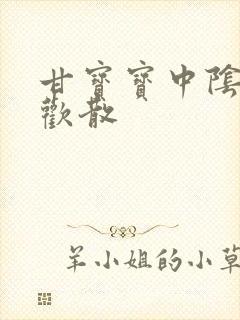 甘寶寶中陰
歡散
羊小姐的小草